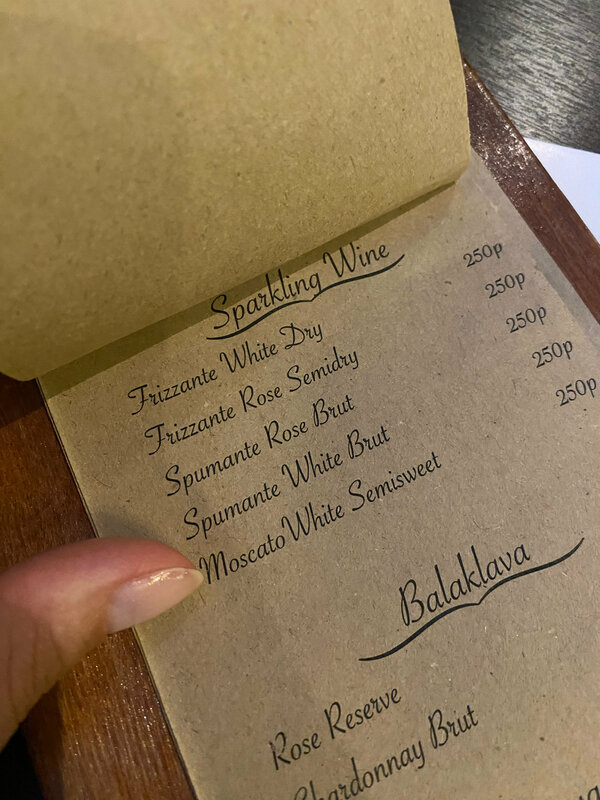 Sparkling Wine
Frizzante White Dry 250р
Frizzante Rose Semidry 250р
Spumante Rose Brut 250р
Spumante White Brut 250р
Moscato White Semisweet 250р
Balaklava
Rose Reserve
Chardonnay Brut